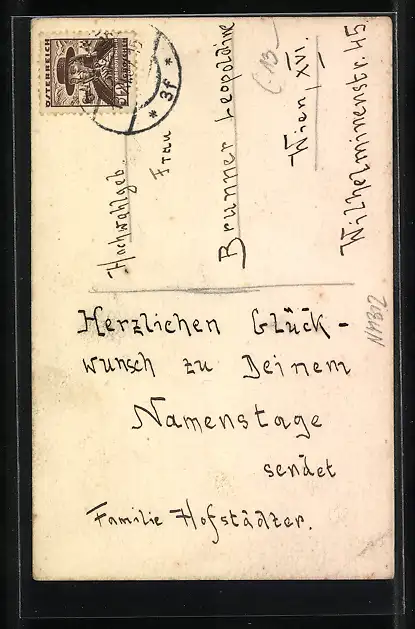 ÖSTERREICH
* 3f *
Hochwohlgeb.
Frau
Brunner Leopoldine
Wien, XVI.
Wilhelminenstr. 45
Herzlichen Glück-
wunsch zu Deinem
Namenstage
sendet
Familie Hofstädter.